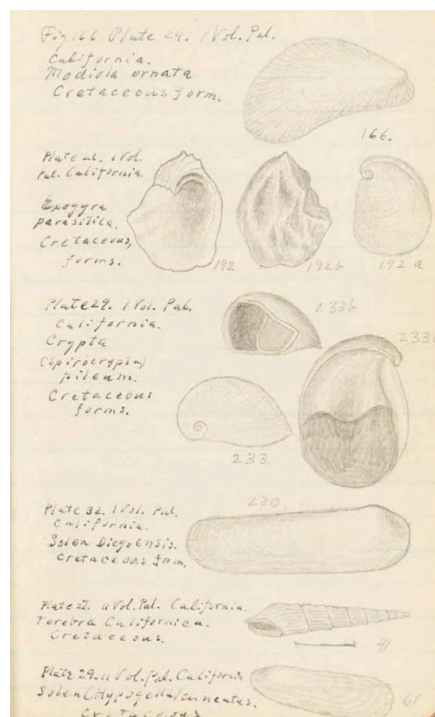 Fig 166. Plate 24. 1 Vol. Pal.
California.
Modiola ornata
Cretaceous form.
166.
Pal. California
Exogyra
parasitica.
Cretaceous,
forms.
192
192b
192a
Plate 29. 1 Vol. Pal.
California.
Crypta
(Spirocrypta)
pileum.
Cretaceous
forms.
233b
233
233.
Plate 32. 1 Vol. Pal.
California.
Solen Diegoensis.
Cretaceous form.
280.
Plate 27. 11 Vol. Pal. California.
Terebra Californica.
Cretaceous.
41
Plate 29. 11 Vol. Pal. California
Solen cuneatus.
Cretaceous
61